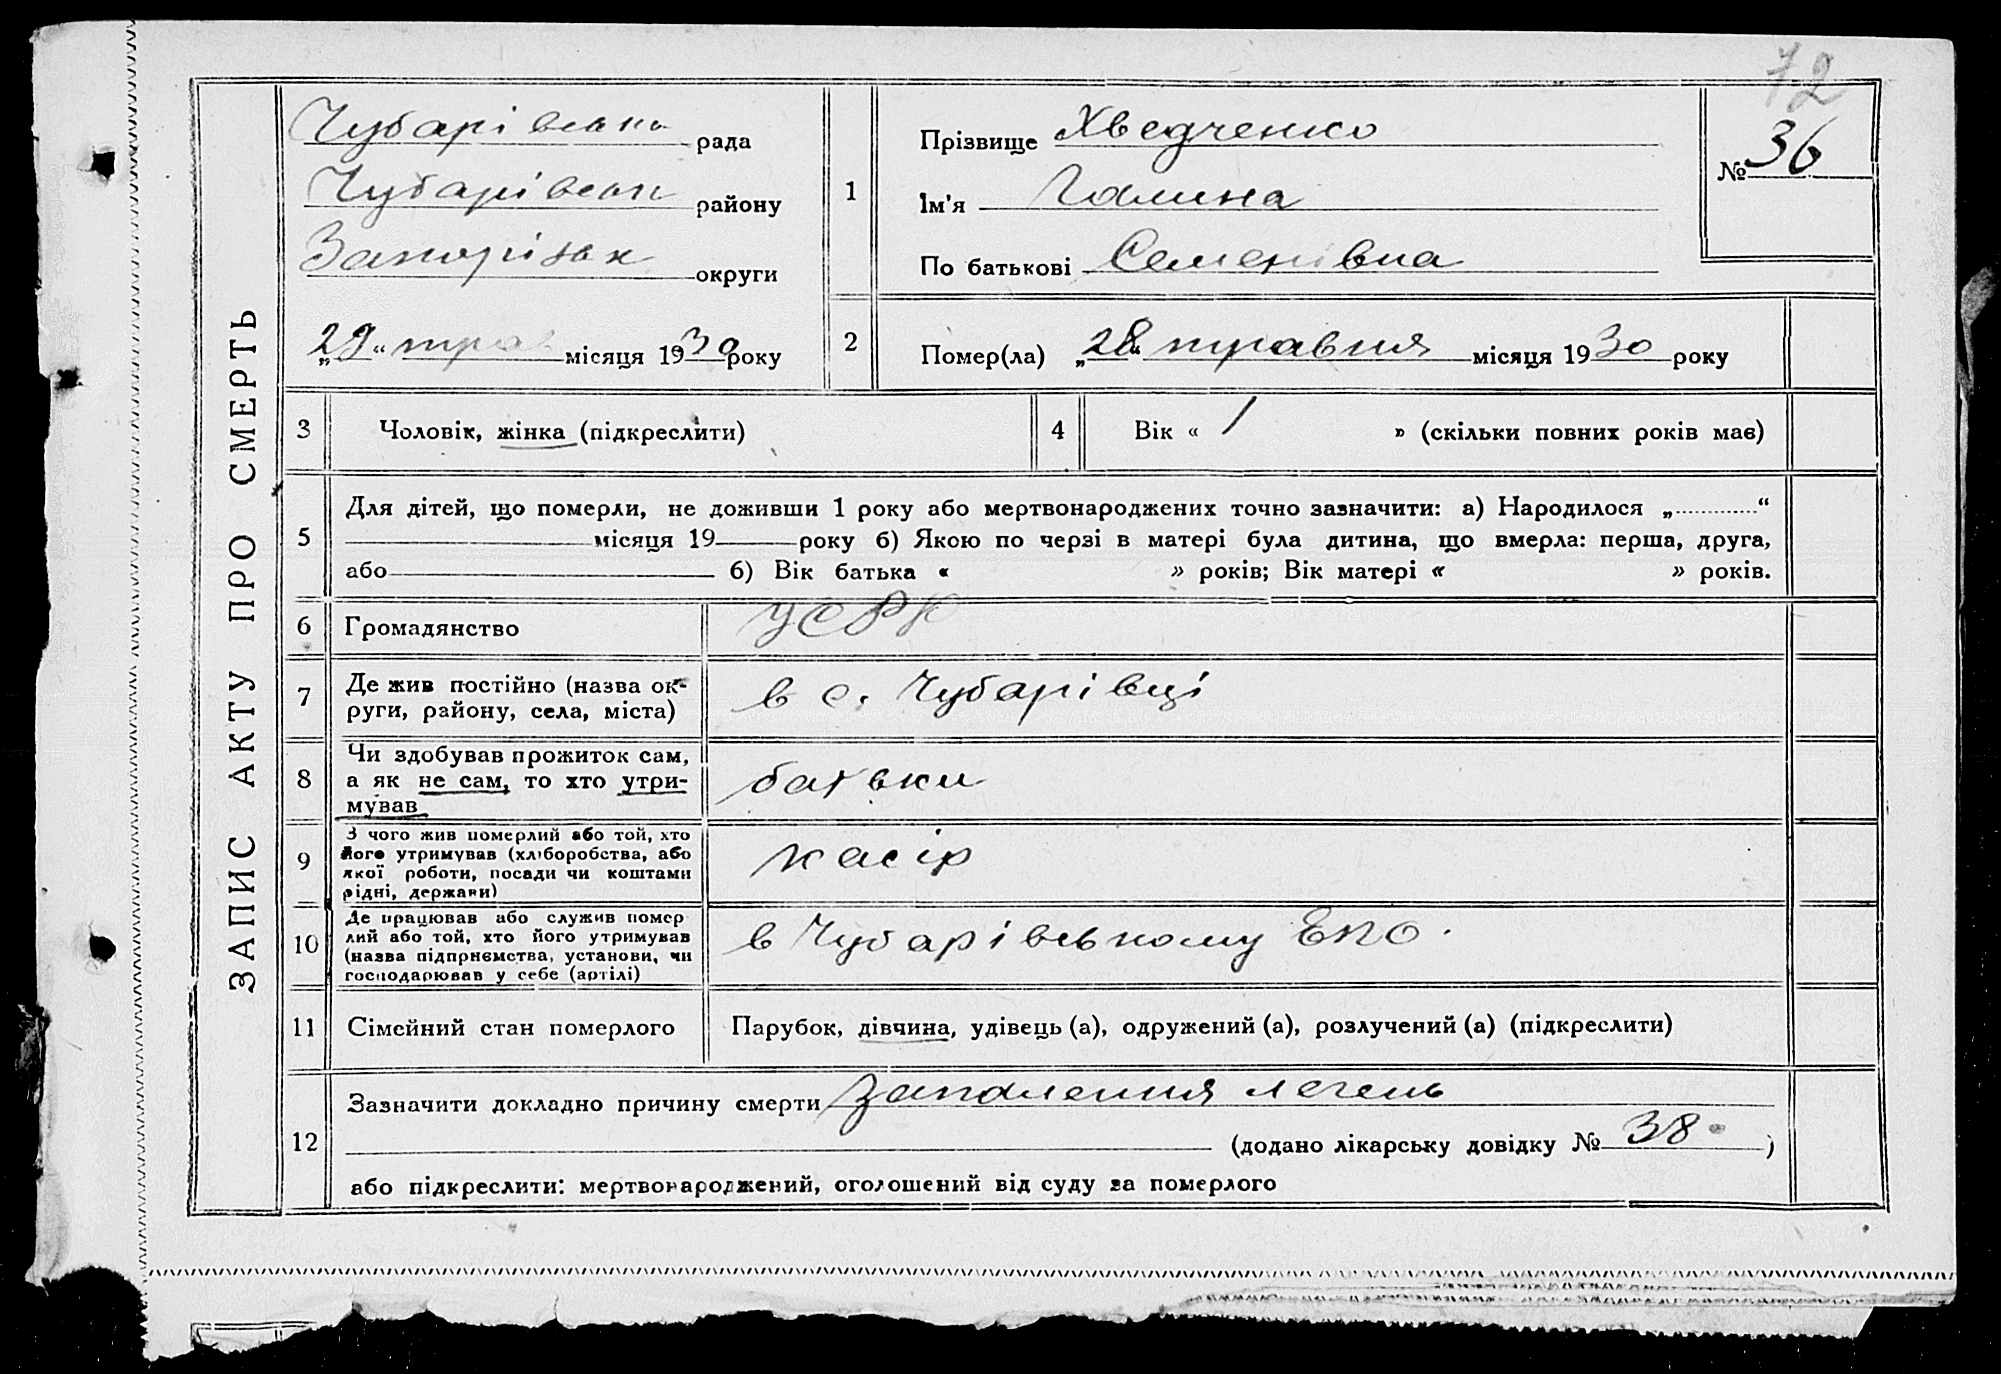 72
ЗАПИС АКТУ ПРО СМЕРТЬ
Чубарівська рада
Чубарівськ району
Запорізьк округи
„29“ трав місяця 1930 року
1
Прізвище Хведченко
Ім'я Галина
По батькові Семенівна
№ 36
2
Помер(ла) „28“ травня місяця 1930 року
3 Чоловік, жінка (підкреслити)
4 Вік « 1 » (скільки повних років має)
5
Для дітей, що померли, не доживши 1 року або мертвонароджених точно зазначити: а) Народилося „............“
місяця 19 року б) Якою по черзі в матері була дитина, що вмерла: перша, друга,
або б) Вік батька « » років; Вік матері « » років.
6 Громадянство УСРР
7 Де жив постійно (назва ок-
руги, району, села, міста)
в с. Чубарівці
8
Чи здобував прожиток сам,
а як не сам, то хто утри-
мував
батьки
9
З чого жив померлий або той, хто
його утримував (хліборобства, або
якої роботи, посади чи коштами
рідні, держави)
касір
10
Де працював або служив помер
лий або той, хто його утримував
(назва підприємства, установи, чи
господарював у себе (артілі)
в Чубарівському ЕПО.
11 Сімейний стан померлого Парубок, дівчина, удівець (а), одружений (а), розлучений (а) (підкреслити)
12
Зазначити докладно причину смерти запалення легень
(додано лікарську довідку № 38 )
або підкреслити: мертвонароджений, оголошений від суду за померлого